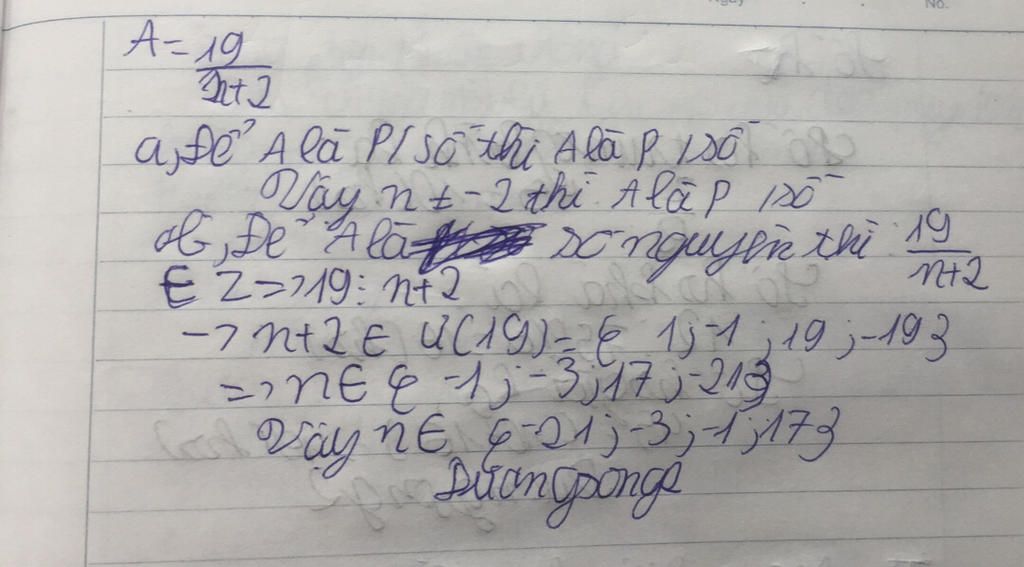 A = 19/n+2
a, Để A là P/số thì A là P/số
Vậy n ≠ -2 thì A là P/số
b, Để A là số nguyên thì 19/n+2
∈ Z => 19 ⋮ n+2
-> n+2 ∈ Ư(19) = { 1; -1; 19; -19}
=> n ∈ { -1; -3; 17; -21}
Vậy n ∈ {-21; -3; -1; 17}